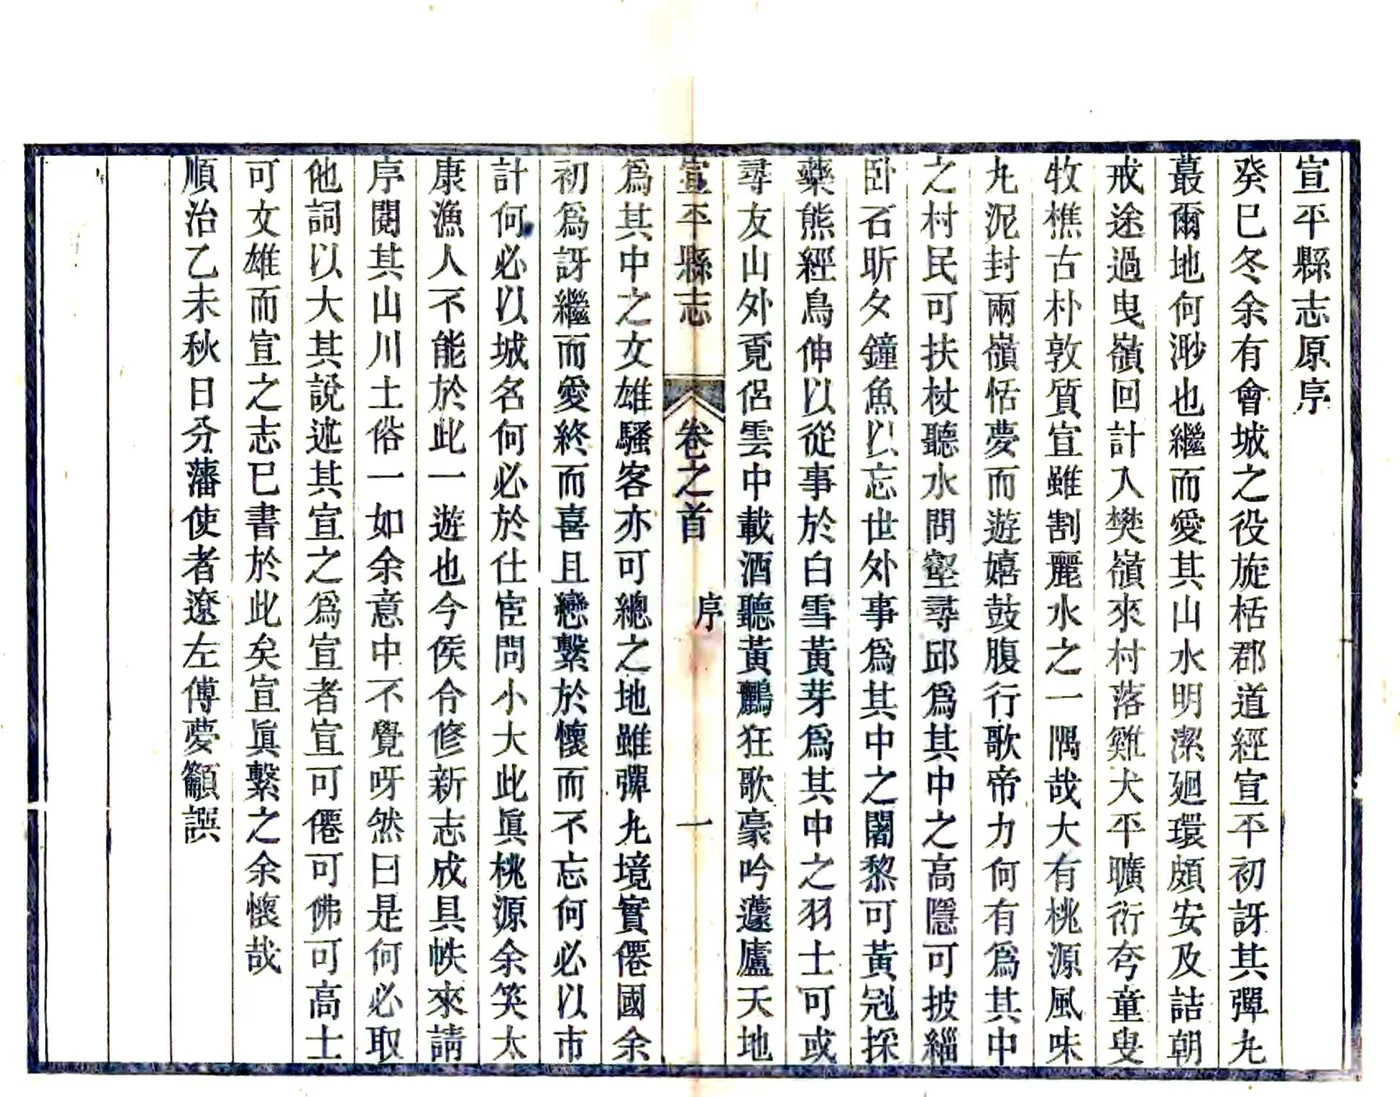 宣平縣志原序
癸巳冬余有會城之役旋栝郡道經宣平初訝其彈丸
蕞爾地何渺也繼而愛其山水明潔廻環頗安及詰朝
戒途過曳嶺回計入樊嶺來村落雞犬平曠衍夸童叟
牧樵古朴敦質宣雖割麗水之一隅哉大有桃源風味
丸泥封兩嶺恬夢而遊嬉鼓腹行歌帝力何有爲其中
之村民可扶杖聽水問壑尋邱爲其中之高隱可披緇
卧石昕夕鐘魚以忘世外事爲其中之闍黎可黃冠採
藥熊經鳥伸以從事於白雪黃芽爲其中之羽士可或
尋友山外覔侶雲中載酒聽黃鸝狂歌豪吟蘧廬天地
宣平縣志 卷之首 序 一
爲其中之文雄騷客亦可總之地雖彈丸境實僊國余
初爲訝繼而愛終而喜且戀繫於懷而不忘何必以市
計何必以城名何必於仕宦問小大此眞桃源余笑太
康漁人不能於此一遊也今侯令修新志成具帙來請
序閱其山川土俗一如余意中不覺呀然曰是何必取
他詞以大其說述其宣之爲宣者宣可僊可佛可高士
可文雄而宣之志已書於此矣宣眞繫之余懷哉
順治乙未秋日分藩使者遼左傅夢籲譔